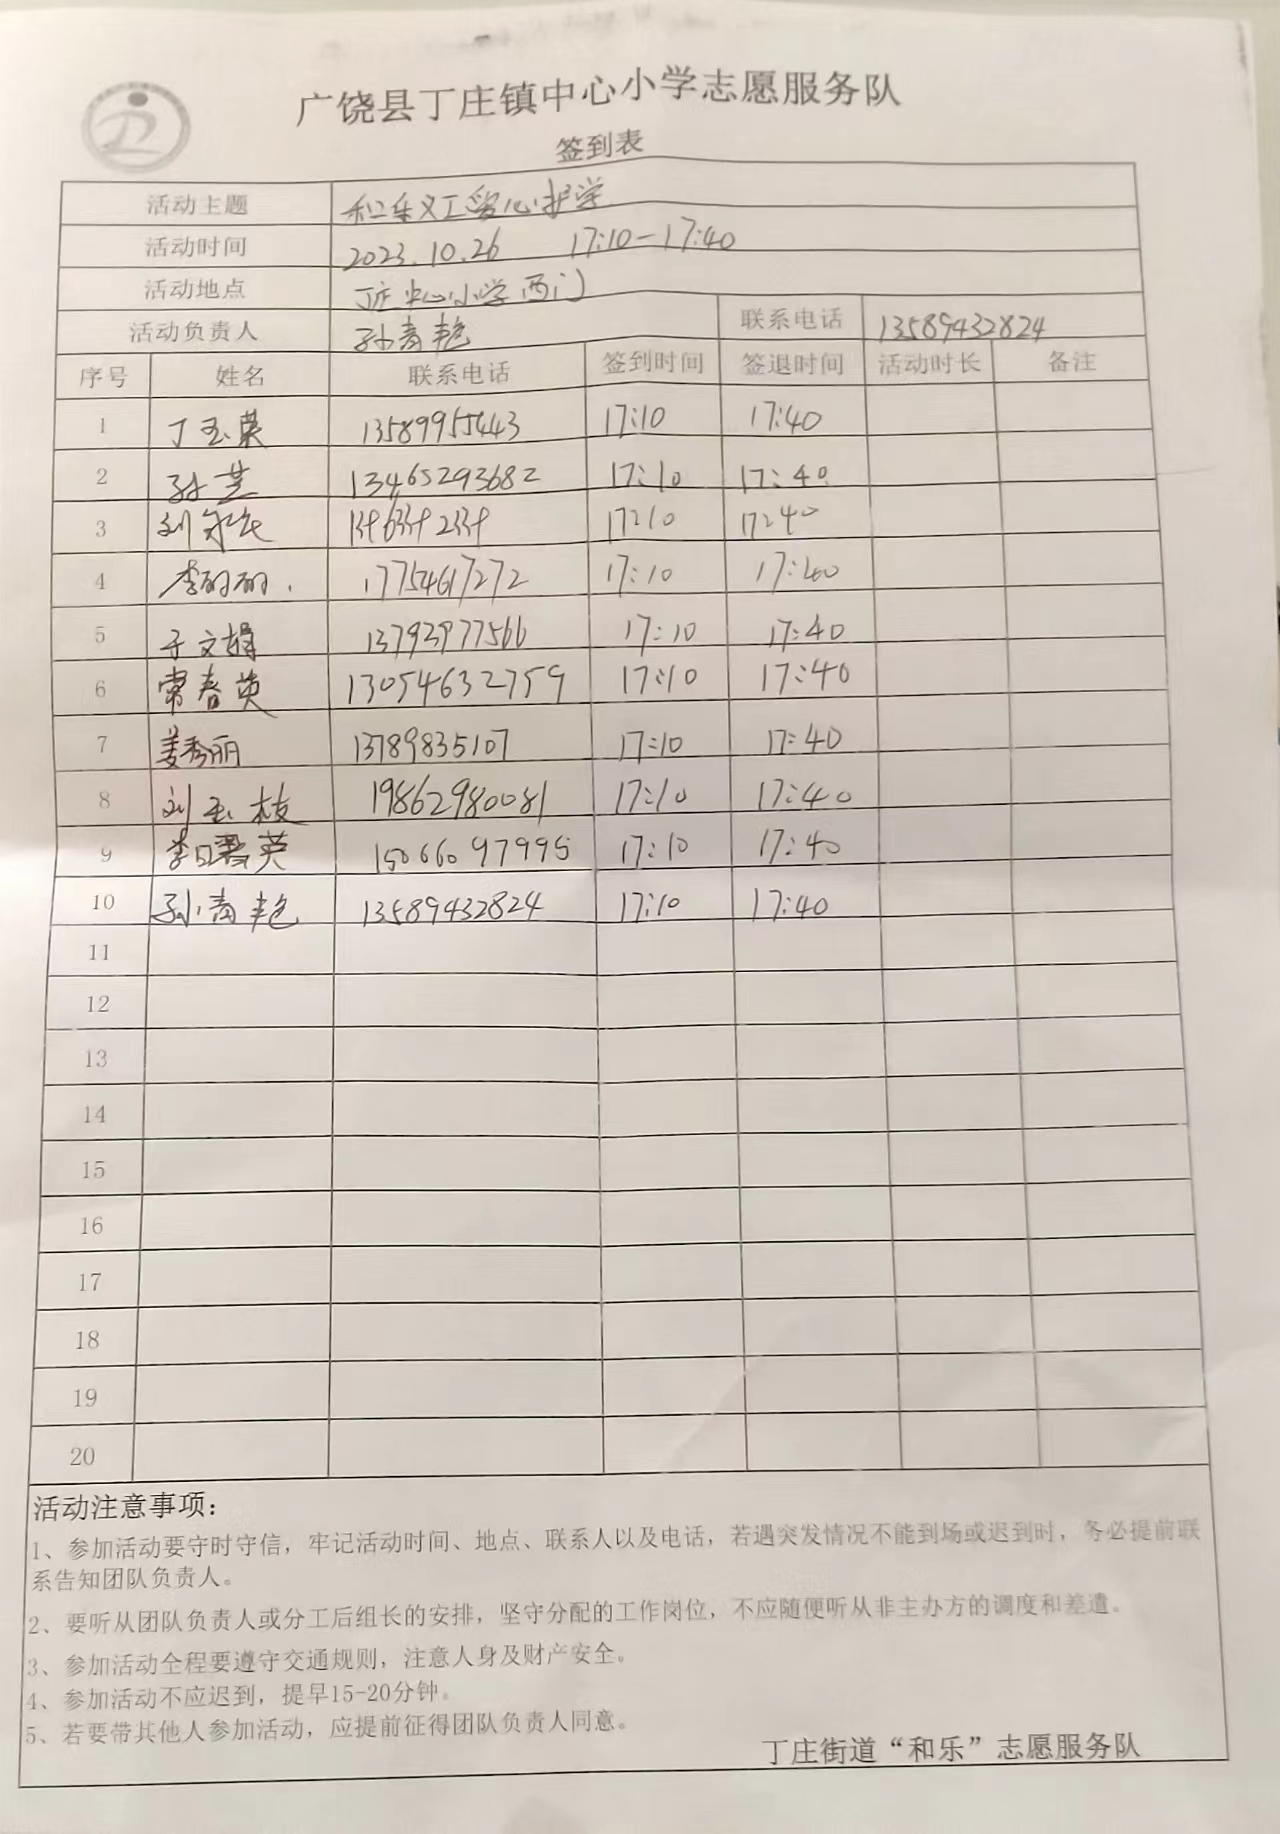 广饶县丁庄镇中心小学志愿服务队
签到表
活动主题 和乐义工 爱心护学
活动时间 2023.10.26 17:10-17:40
活动地点 丁庄中心小学西门
活动负责人 孙青艳 联系电话 13589432824
序号 姓名 联系电话 签到时间 签退时间 活动时长 备注
1 丁玉荣 13589955443 17:10 17:40
2 孙芝 13465293682 17:10 17:40
3 刘 17:10 17:40
4 李丽丽 17754617272 17:10 17:40
5 于文娟 13793977566 17:10 17:40
6 常春英 13054632759 17:10 17:40
7 姜秀丽 13789835107 17:10 17:40
8 刘玉枝 19862980081 17:10 17:40
9 李 英 15066097995 17:10 17:40
10 孙青艳 13589432824 17:10 17:40
11
12
13
14
15
16
17
18
19
20
活动注意事项：
1、参加活动要守时守信，牢记活动时间、地点、联系人以及电话，若遇突发情况不能到场或迟到时，务必提前联
系告知团队负责人。
2、要听从团队负责人或分工后组长的安排，坚守分配的工作岗位，不应随便听从非主办方的调度和差遣。
3、参加活动全程要遵守交通规则，注意人身及财产安全。
4、参加活动不应迟到，提早15-20分钟。
5、若要带其他人参加活动，应提前征得团队负责人同意。
丁庄街道“和乐”志愿服务队